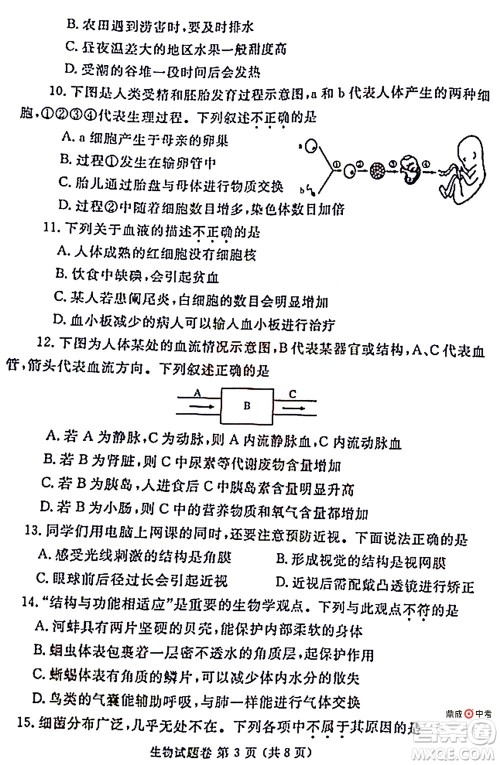 B. 农田遇到涝害，要及时排水
C. 昼夜温差大的地区水果一般甜度高
D. 受潮的谷堆一段时间后会发热
10. 下图是人类受精和胚胎发育过程示意图，a和b代表人体产生的两种细
胞，①②③④代表生理过程。下列叙述不正确的是
A. a细胞产生于母亲的卵巢
B. 过程①发生在输卵管中
C. 胎儿通过胎盘与母体进行物质交换
D. 过程②③细胞数目增多，染色体数目增多
a
b
① ② ③ ④
11. 下列关于血液的描述不正确的是
A. 人体成熟的红细胞没有细胞核
B. 饮食中缺碘，会引起贫血
C. 某人若患阑尾炎，白细胞的数目会增多
D. 血小板减少的病人可以输入血小板进行治疗
12. 下图为人体某处的血流情况示意图，B代表某器官或结构，A、C代表血
管，箭头代表血流方向。下列叙述正确的是
A B C
A. 若A为静脉，C为动脉，则A内流静脉血，C内流动脉血
B. 若B为肾脏，则C中尿素等代谢废物含量增加
C. 若B为胰岛，则C中胰岛素含量增加
D. 若B为小肠，则C中的营养物质和氧含量增加
13. 同学们用电脑上网课的同时，还要注意预防近视。下面说法正确的是
A. 感受光线刺激的结构是角膜
B. 形成视觉的结构是视网膜
C. 眼球前后径过长会引起近视
D. 近视可戴凸透镜进行矫正
14. “结构与功能相适应”是重要的生物学观点。下列与此观点不符的是
A. 河蚌具有两片坚硬的贝壳，有利于保护柔软的身体
B. 蛔虫体表包裹着角质层，可以防止体内水分的散失
C. 蜥蜴体表覆盖着角质的鳞片，可以防止体内水分的散失
D. 鸟类的气囊能辅助呼吸，与其飞行生活相适应
15. 细菌分布广泛，几乎无处不在。下列各项中不属于其原因的是
生物试题卷 第3页（共8页）
鼎成中考